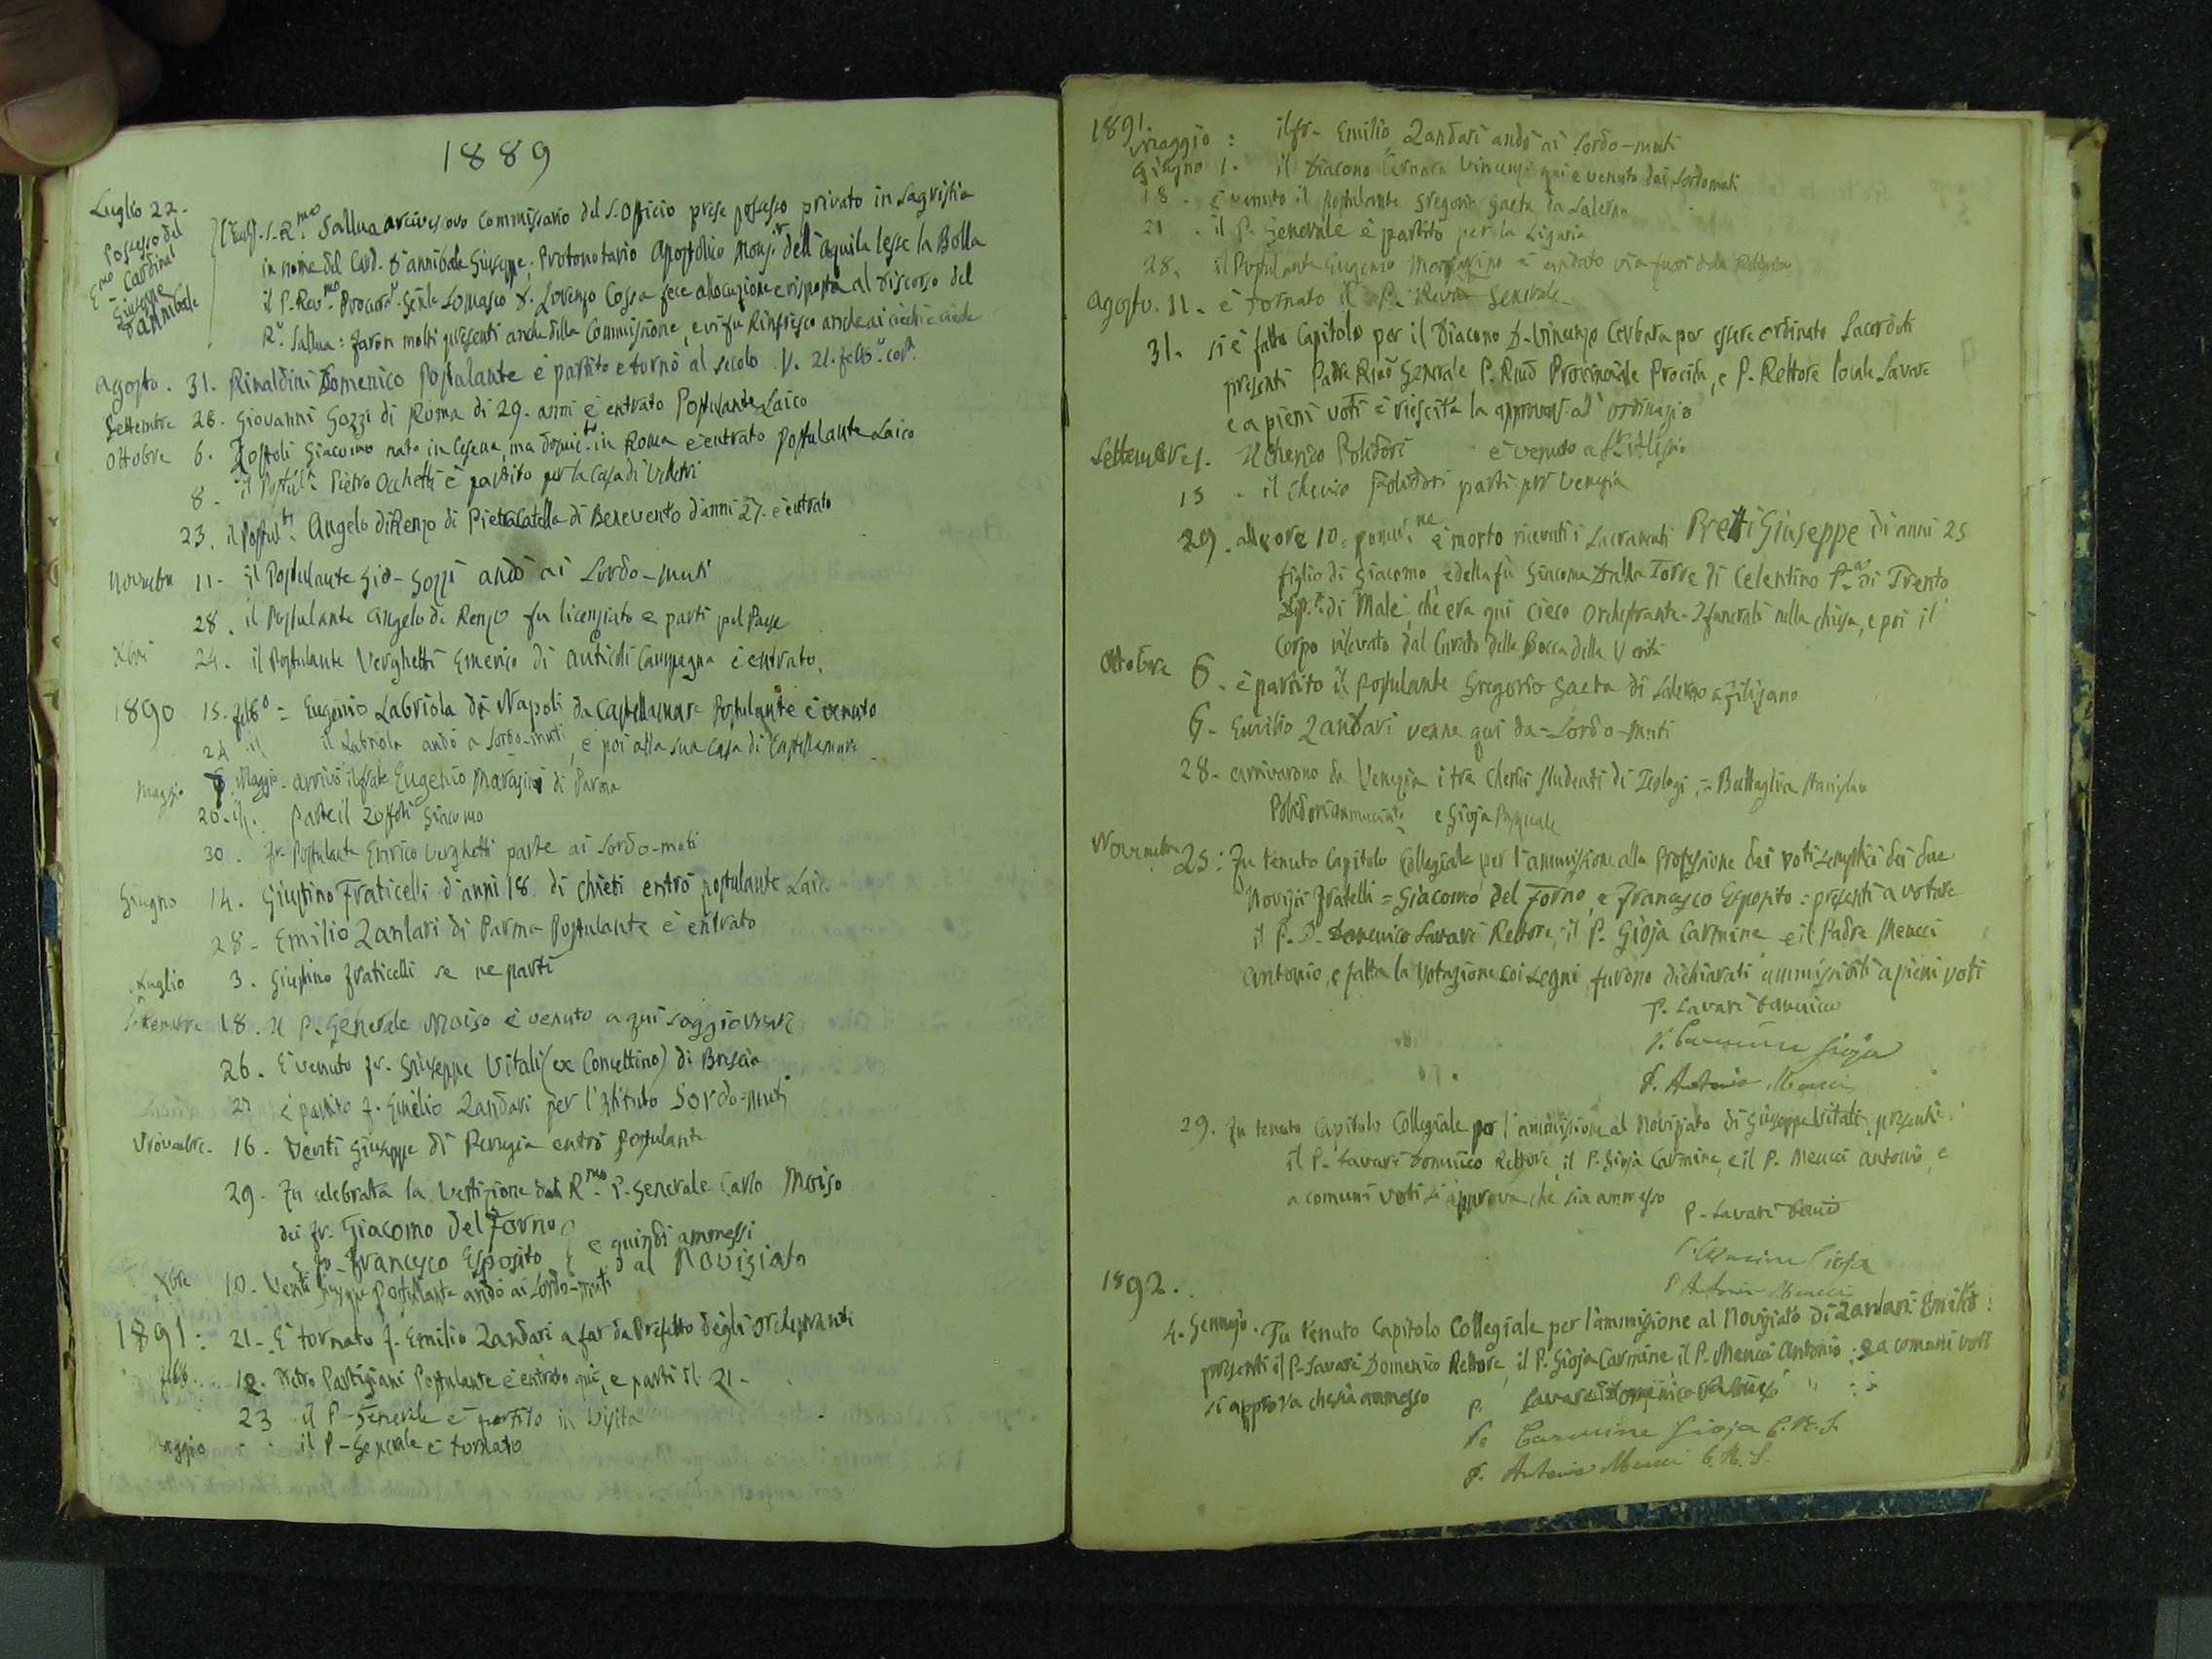 1889
Luglio 22.
Possesso del
E.mo Cardinal
Giuseppe
D'annibale
S. R.mo Sallua arcivescovo Commissario del S. Officio prese possesso privato in Sagristia
in nome del Card. D'annibale Giuseppe, Protonotario Apostolico Mons.r dell'aquila lesse la Bolla
il P. Rev.mo Procurat.e Gen.le Somasco D. Lorenzo Cossa fece allocuzione e risposta al discorso del
R.o Sallua: faron molti presenti anche della Commissione, e vi fu Rinfresco anche ai ciechi e cieche
Agosto. 31. Rinaldini Domenico Postulante è partito e tornò al secolo V. 21. febb.o
Settembre 28. Giovanni Gozzi di Roma di 29. anni è entrato Postulante Laico
Ottobre 6. Zoffoli Giacomo nato in Cesena, ma domic.to in Roma è entrato postulante Laico
8. il Postul.te Pietro Occhetti è partito per la Casa di Velletri
23. il Postul.te Angelo diRenzo di Pietracatella di Benevento d'anni 27. è entrato
Novembre 11- il Postulante Gio- Gozzi andò ai Sordo-muti
28. il Postulante Angelo di Renzo fu licenziato e partì pel Paese
Xbri 24. il Postulante Verghetti Emerico di Anticoli Campagna è entrato.
1890 15. febb.o = Eugenio Labriola di Napoli da Castellamare Postulante è venuto
24 il il Labriola andò a Sordo-muti, e poi alla sua casa di Castellamare
Maggio 8. Maggio. arrivò il frate Eugenio Marasini di Parma
20. parte il Zoffoli Giacomo
30. fr. Postulante Enrico Verghetti parte ai Sordo-muti
Giugno 14. Giustino Fraticelli d'anni 18. di Chieti entrò postulante Laico
28- Emilio Zanlari di Parma Postulante è entrato
Luglio 3. Giustino Fraticelli se ne partì
Settembre 18. Il P. Generale Moiso è venuto a qui soggiornare
26. È venuto fr. Giuseppe Vitali (ex Concettino) di Brescia
27 è partito f. Emilio Zandari per l'Istituto Sordo-muti
Novembre. 16. Venti Giuseppe di Perugia entrò postulante
29. Fu celebrata la Vestizione dal R.mo P. Generale Carlo Moiso
dei fr. Giacomo Del Forno
fr. Francesco Esposito e quindi ammessi
al Noviziato
Xbre 10. Venti Giuseppe postulante andò ai Sordo-muti
1891: 21-. È tornato f. Emilio Zandari a far da Prefetto degli orchestranti
febb. 12. Pietro Partigiani Postulante è entrato qui, e partì il 21-
23 il P- Generale è partito in Visita
Maggio il P- Generale è tornato
1891.
Maggio: il fr- Emilio Zandari andò ai Sordo-muti
Giugno 1. il Diacono Cernara Vincenzo qui è venuto dai Sordomuti
18. è venuto il Postulante Gregorio Gaeta da Salerno
21. il P. Generale è partito per la Liguria
28. il Postulante Eugenio è andato via fuori della Religione
Agosto. 11. è tornato il P. Rev.mo Generale
31. si è fatto Capitolo per il Diacono D. Vincenzo Cerbara per essere ordinato Sacerdote
presenti Padre R.mo Generale P. R.mo Provinciale Procida, e P. Rettore locale Savarè
e a pieni voti è riescita la approvaz. all'ordinazio
Settembre 1. Il Cherico Polidori è venuto a S. Alessio
15. il Cherico Polidori partì per Venezia
29. alle ore 10. pomeri.ne è morto ricevuti i Sacramenti Pretti Giuseppe di anni 25
figlio di Giacomo, e della fù Giacoma Dalla Torre di Celentino P.a di Trento
di Malè, che era qui cieco Orchestrante. I funerali nella chiesa, e poi il
Corpo rilevato dal Curato della Bocca della Verità
Ottobre 6. è partito il postulante Gregorio Gaeta di Salerno
6. Emilio Zandari venne qui da-Sordo-muti
28- arrivarono da Venezia i tre Cherici studenti di Teologi. = Battaglia Stanislao
Polidori e Gioja Pasquale
Novembre 25: Fu tenuto Capitolo Collegiale per l'ammissione alla Professione dei voti semplici dei due
Novizii Fratelli = Giacomo Del Forno, e Francesco Esposito = presenti a votare
il P. D. Domenico Savarè Rettore, il P. Gioja Carmine e il Padre Meucci
Antonio, e fatta la votazione coi segni furono dichiarati ammissibili a pieni voti
P. Savarè Domenico
P. Carmine Gioja
P. Antonio Meucci
29. Fu tenuto Capitolo Collegiale per l'ammissione al Noviziato di Giuseppe Vitali, presenti
il P. Savarè Domenico Rettore, il P. Gioja Carmine, e il P. Meucci Antonio, e
a comuni voti si approva che sia ammesso
P. Savarè Domico
P. Carmine Gioja
P. Antonio Meucci
1892.
4. Gennajo. Fu tenuto Capitolo Collegiale per l'ammissione al Noviziato di Zandari Emilio:
presenti il P. Savarè Domenico Rettore, il P. Gioja Carmine, il P. Meucci Antonio: e a comuni voti
si approva che sia ammesso
P. Savarè Domenico
P. Carmine Gioja C.R.S.
P. Antonio Meucci C.R.S.